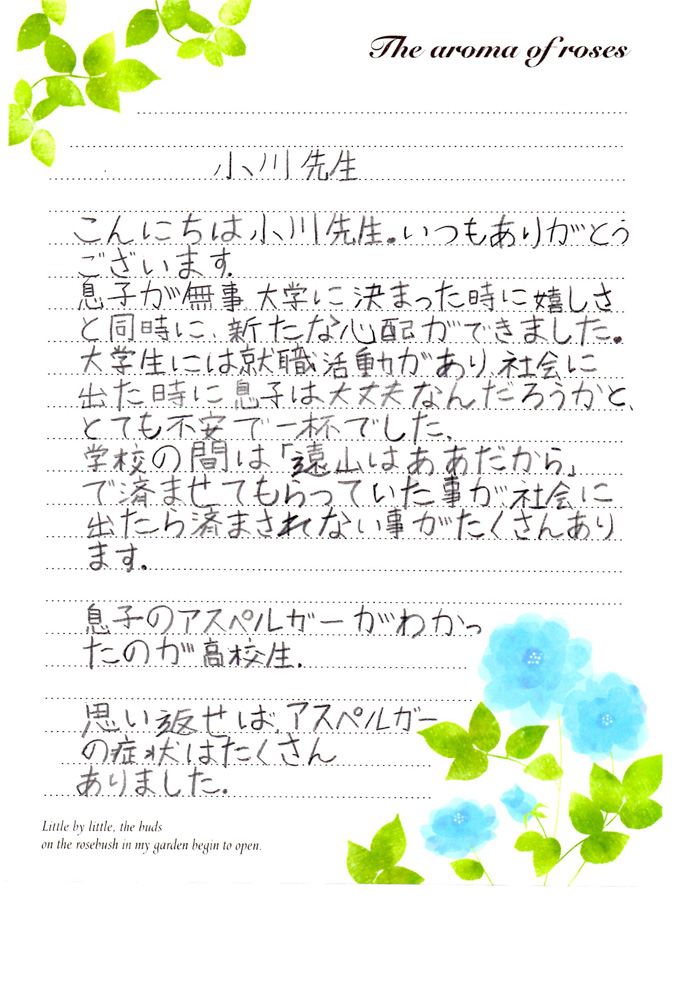 The aroma of roses
小川先生
こんにちは小川先生。いつもありがとう
ございます。
息子が無事大学に決まった時に嬉しさ
と同時に、新たな心配ができました。
大学生には就職活動があり、社会に
出た時に息子は大丈夫なんだろうかと、
とても不安で一杯でした。
学校の間は「遠山はああだから」
で済ませてもらっていた事が社会に
出たら済まされない事がたくさんあり
ます。
息子のアスペルガーがわかっ
たのが高校生。
思い返せば、アスペルガー
の症状はたくさん
ありました。
Little by little, the buds
on the rosebush in my garden begin to open.